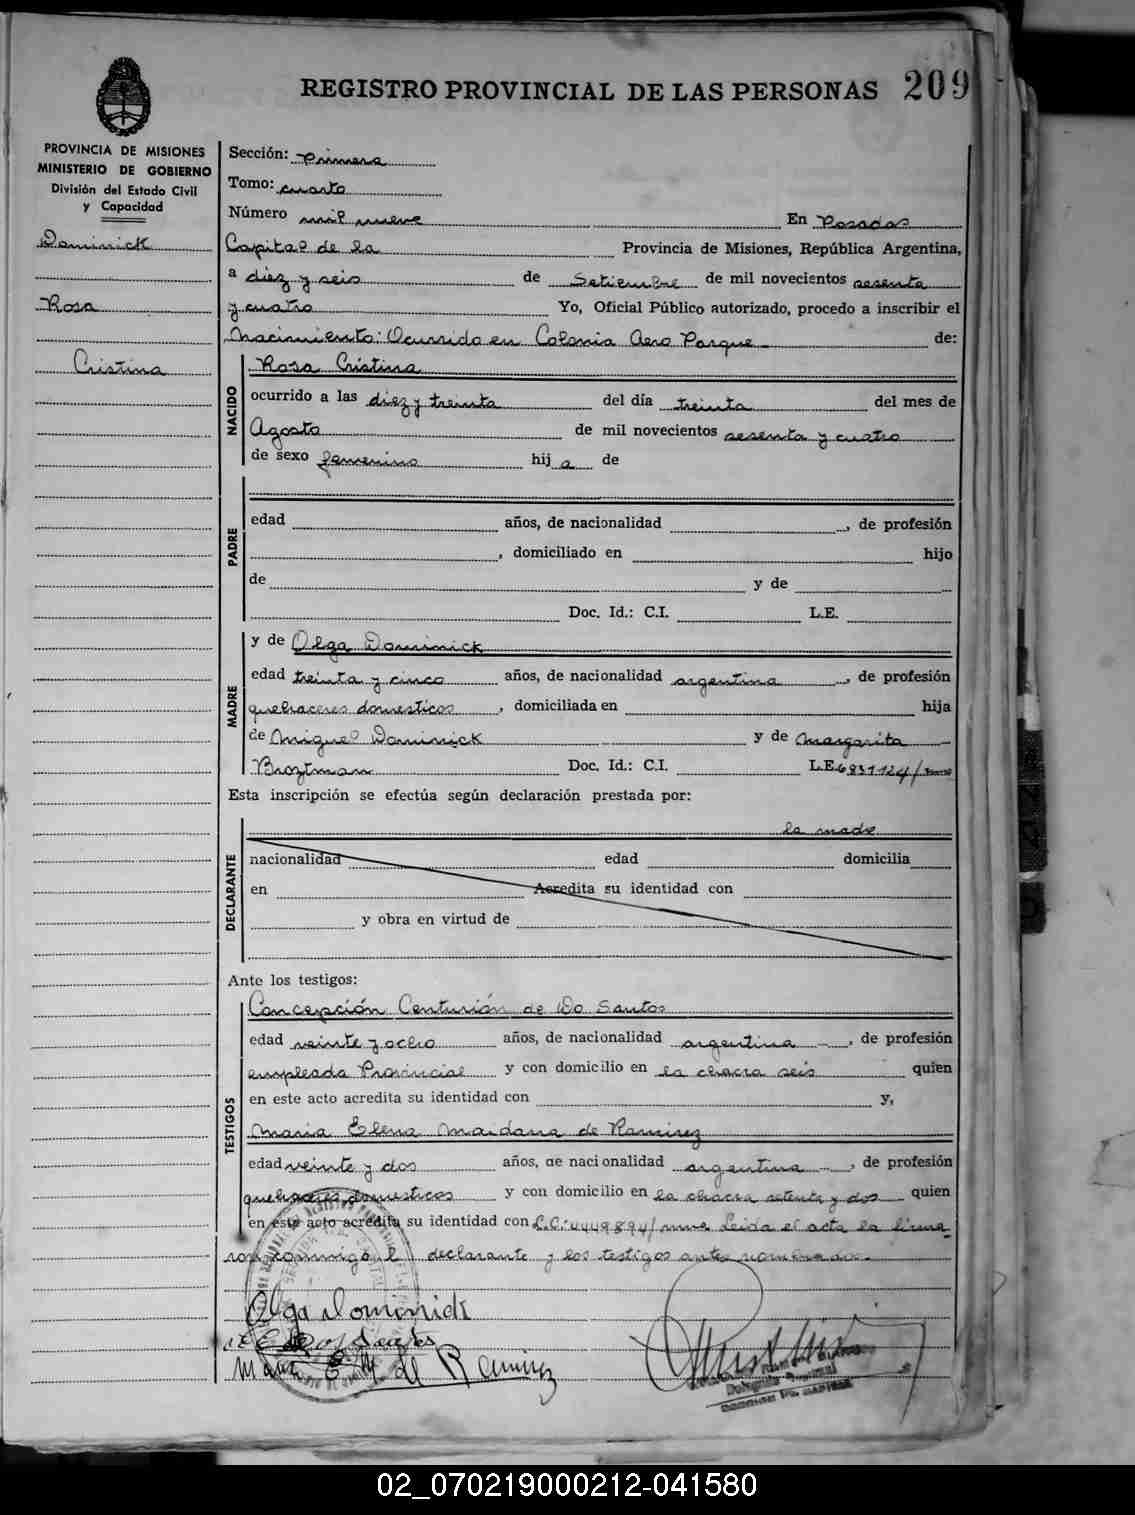 REGISTRO PROVINCIAL DE LAS PERSONAS 209
PROVINCIA DE MISIONES
MINISTERIO DE GOBIERNO
División del Estado Civil
y Capacidad
Dominick
Rosa
Cristina
Sección: Primera
Tomo: cuarto
Número mil nueve En Posadas
Capital de la Provincia de Misiones, República Argentina,
a diez y seis de Setiembre de mil novecientos sesenta
y cuatro Yo, Oficial Público autorizado, procedo a inscribir el
Nacimiento: Ocurrido en Colonia Aero Parque de:
NACIDO
Rosa Cristina
ocurrido a las diez y treinta del día treinta del mes de
Agosto de mil novecientos sesenta y cuatro
de sexo femenino hij a de
PADRE
edad años, de nacionalidad , de profesión
, domiciliado en hijo
de y de
Doc. Id.: C.I. L.E.
MADRE
y de Olga Dominick
edad treinta y cinco años, de nacionalidad argentina , de profesión
quehaceres domesticos , domiciliada en hija
de Miguel Dominick y de Margarita
Broztman Doc. Id.: C.I. L.E. 6831124/
Esta inscripción se efectúa según declaración prestada por:
DECLARANTE
la madre
nacionalidad edad domicilia
en Acredita su identidad con
y obra en virtud de
Ante los testigos:
TESTIGOS
Concepción Centurión de Do Santos
edad veinte y ocho años, de nacionalidad argentina , de profesión
empleada Provincial y con domicilio en la chacra seis quien
en este acto acredita su identidad con y,
Maria Elena Maidana de Ramirez
edad veinte y dos años, de nacionalidad argentina , de profesión
quehaceres domesticos y con domicilio en la chacra setenta y dos quien
en este acto acredita su identidad con L.C: 4449894/ Leida el acta la firma
ron conmigo l declarante y los testigos antes nombrados.
Olga Dominick
Maria E M de Ramirez
02_070219000212-041580